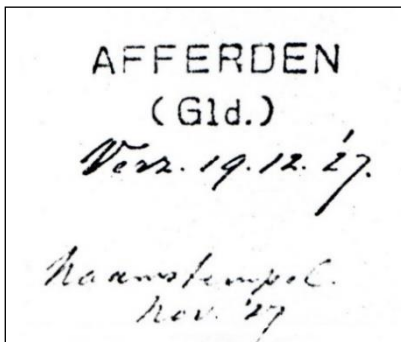 AFFERDEN
(Gld.)
Verz. 19.12.'27.
Naamstempel.
Nov. '27